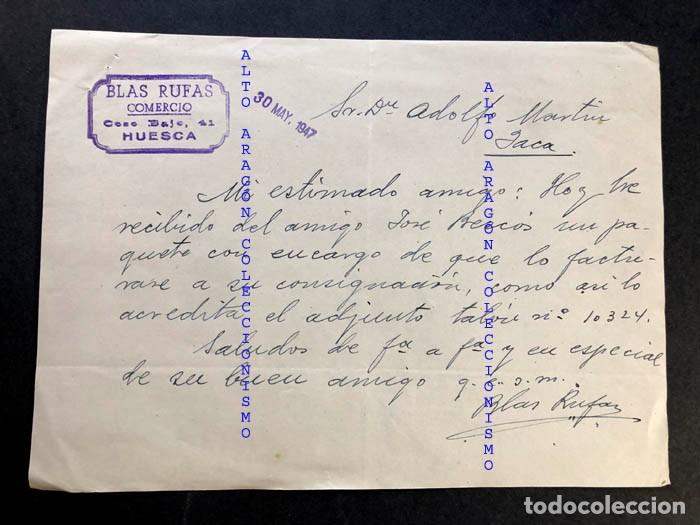 BLAS RUFAS
COMERCIO
Coso Bajo, 41
HUESCA
30 MAY. 1947
Sr. Dn Adolfo Martin
Jaca.
Mi estimado amigo: Hoy he
recibido del amigo José un pa-
quete con encargo de que lo factu-
rase a su consignación, como asi lo
acredita el adjunto talón nº 10324.
Saludos de fª a fª y en especial
de su buen amigo q. e. s. m.
Blas Rufas
ALTO ARAGON COLECCIONISMO
ALTO ARAGON COLECCIONISMO
todocoleccion